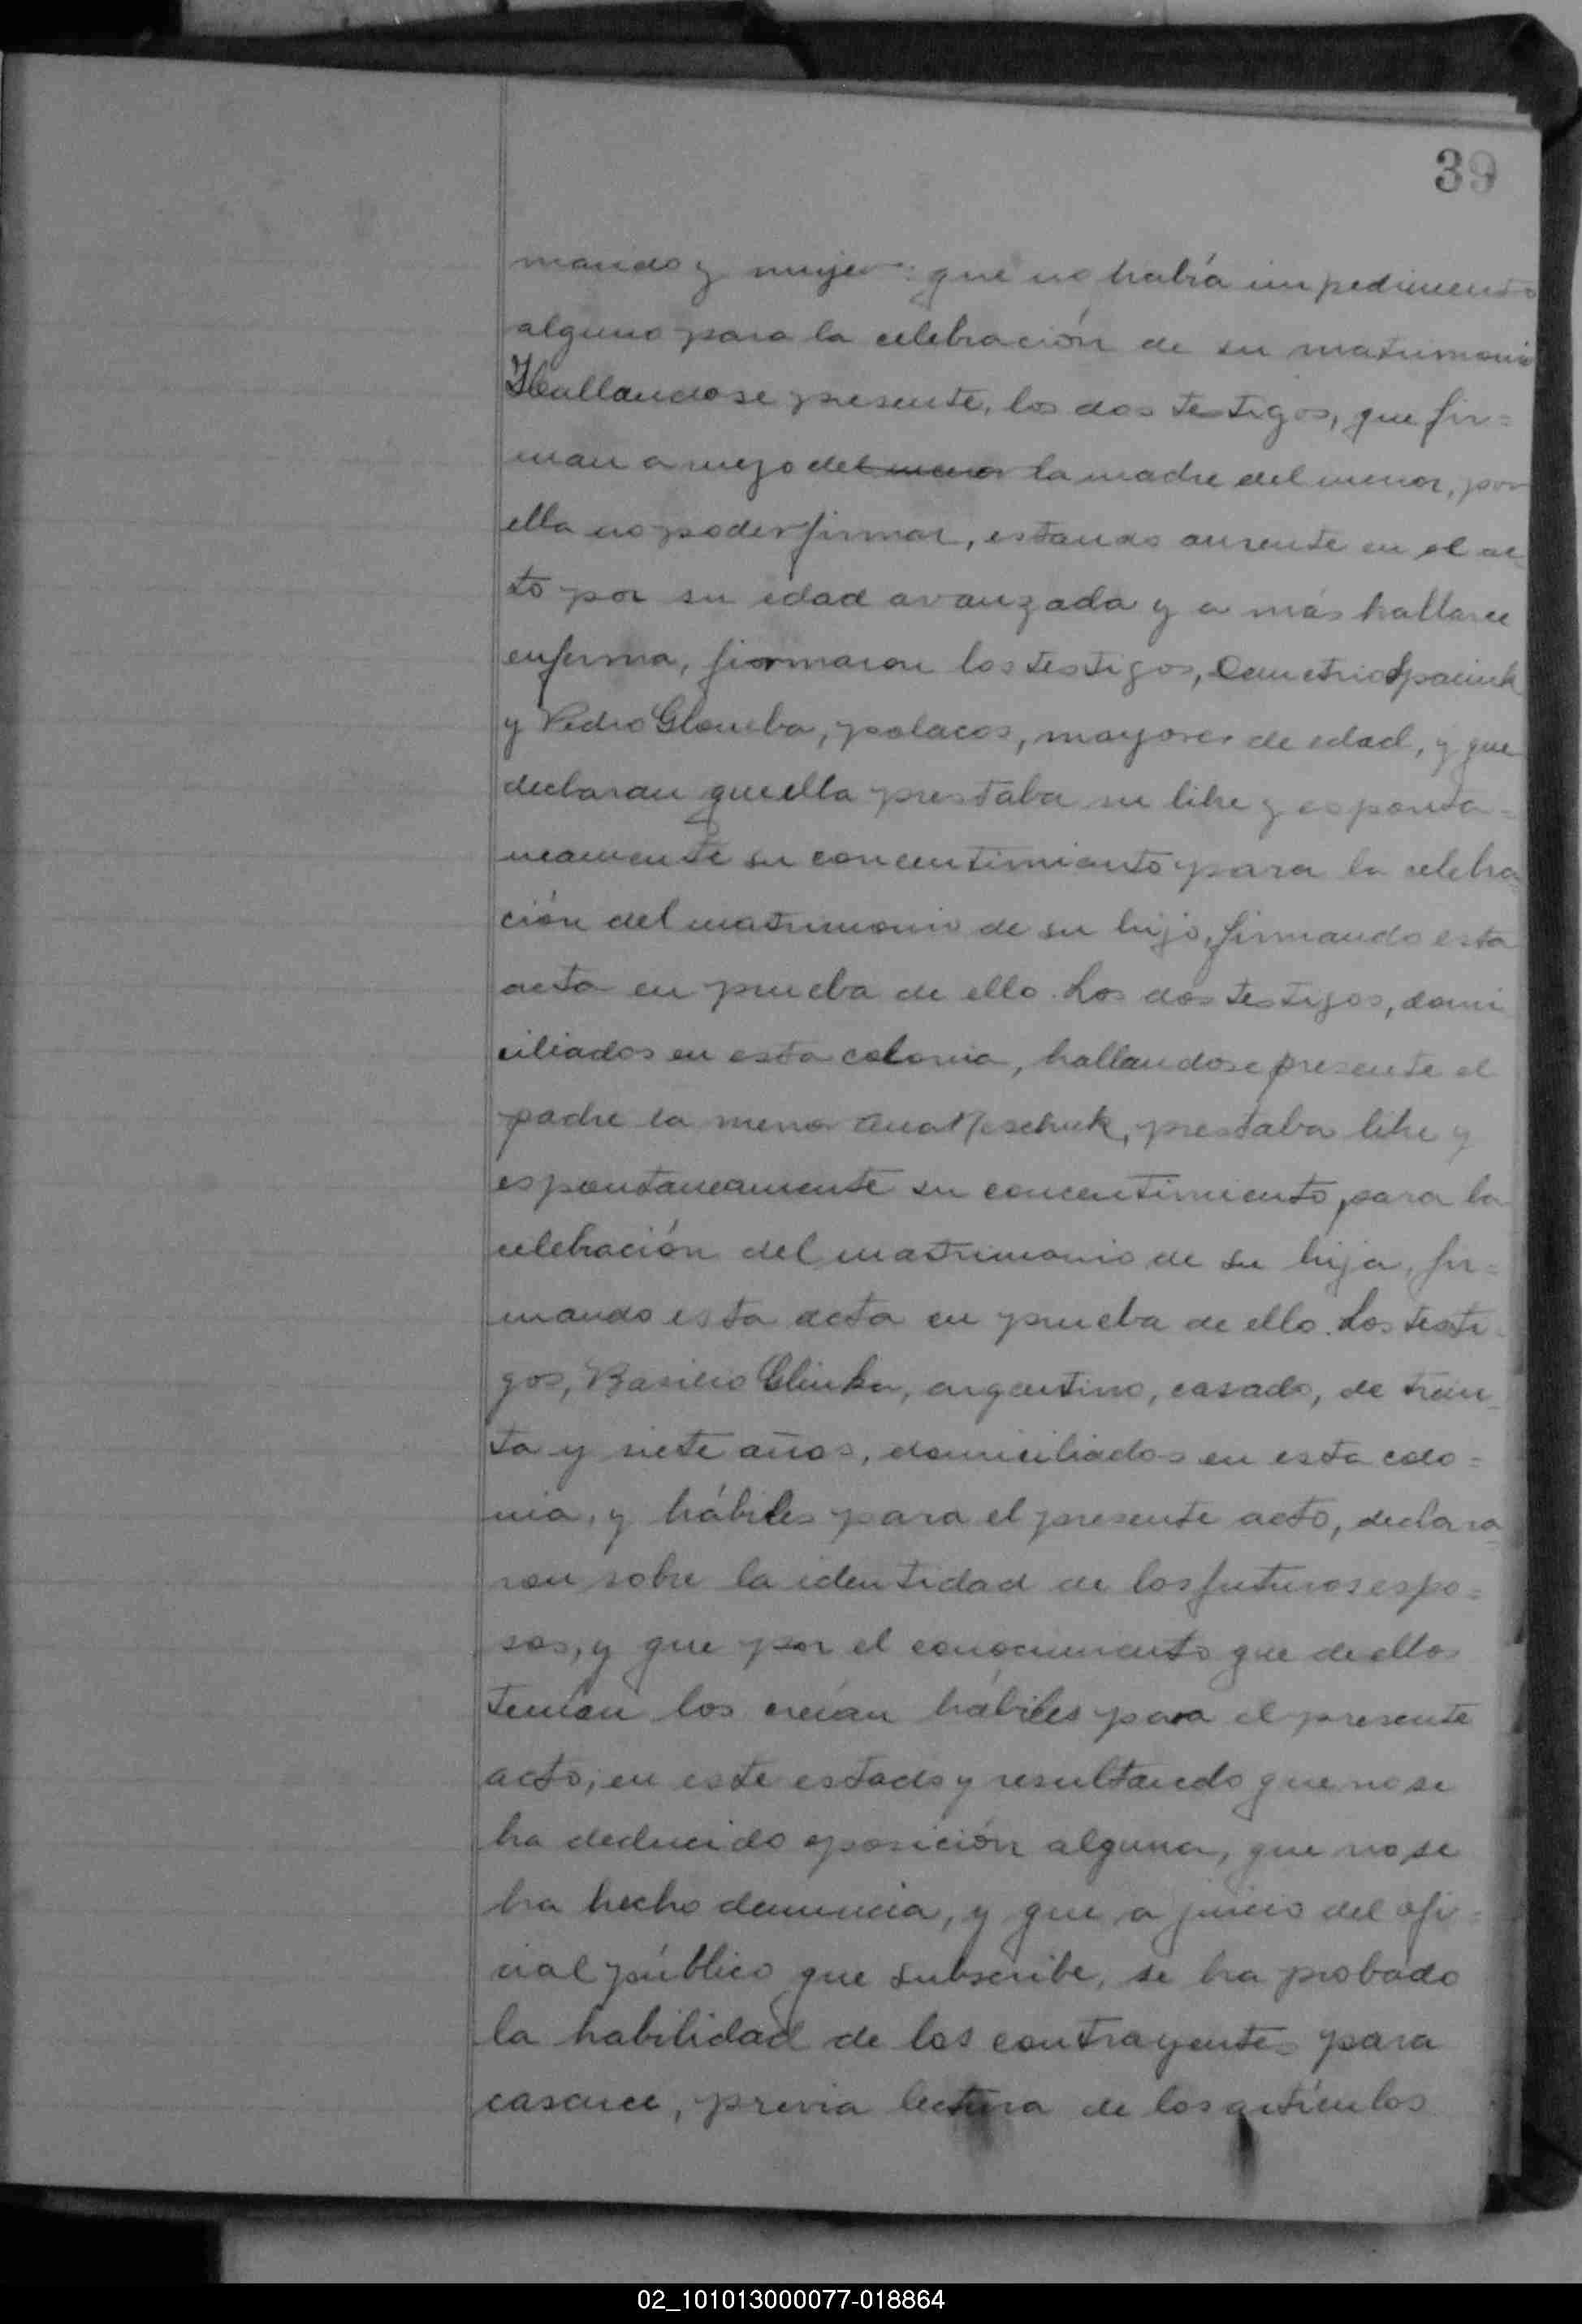 39
marido y mujer que no había impedimento
alguno para la celebración de su matrimonio
Hallandose presente, los dos testigos, que fir=
man a ruego del menor la madre del menor, por
ella no poder firmar, estando ausente en el ac
to por su edad avanzada y a más hallarce
enferma, firmaron los testigos, Demetrio
y Pedro Glomba, polacos, mayores de edad, y que
declaran que ella prestaba su libre y esponta=
neamente su concentimiento para la celebra
ción del matrimonio de su hijo, firmando esta
acta en prueba de ello. Los dos testigos, domi
ciliados en esta colonia, hallandose presente el
padre la menor Ana Meschuk, prestaba libre y
espontaneamente su concentimiento, para la
celebración del matrimonio de su hija, fir=
mando esta acta en prueba de ello. Los testi
gos, Basilio Glinka, argentino, casado, de trein
ta y siete años, domiciliados en esta colo=
nia, y hábiles para el presente acto, declara
ron sobre la identidad de los futuros espo=
sos, y que por el conocimiento que de ellos
tenían los creían hábiles para el presente
acto, en este estado y resultando que no se
ha deducido oposición alguna, que no se
ha hecho denuncia, y que a juicio del ofi=
cial público que subscribe, se ha probado
la habilidad de los contrayentes para
casarce, previa lectura de los artículos
02_101013000077-018864